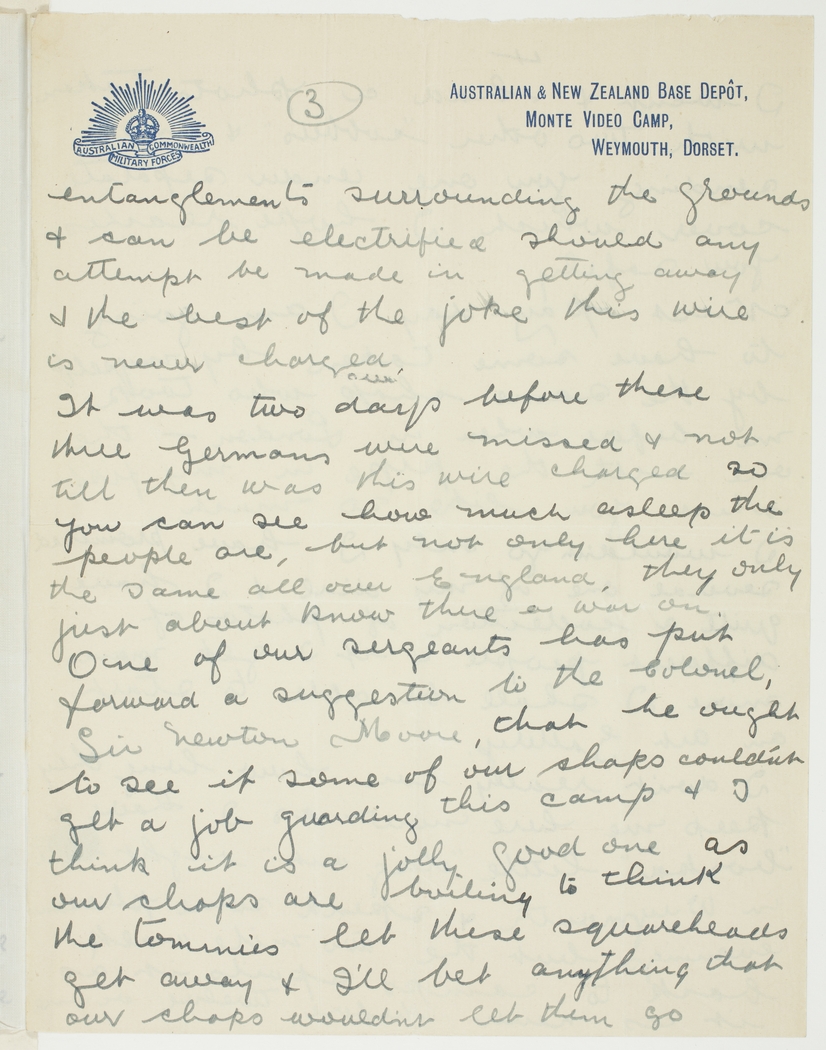 3
AUSTRALIAN COMMONWEALTH
MILITARY FORCES
AUSTRALIAN & NEW ZEALAND BASE DEPÔT,
MONTE VIDEO CAMP,
WEYMOUTH, DORSET.
entanglements surrounding the grounds
& can be electrified should any
attempt be made in getting away
& the best of the joke this wire
is never charged.
It was two days before these
three Germans were missed & not
till then was this wire charged so
you can see how much asleep the
people are, but not only here it is
the same all over England, they only
just about know there a war on.
One of our sergeants has put
forward a suggestion to the Colonel,
Sir Newton Moore, that he ought
to see if some of our chaps couldnt
get a job guarding this camp & I
think it is a jolly good one as
our chaps are boiling to think
the tommies let these squareheads
get away & I'll bet anything that
our chaps wouldnt let them go